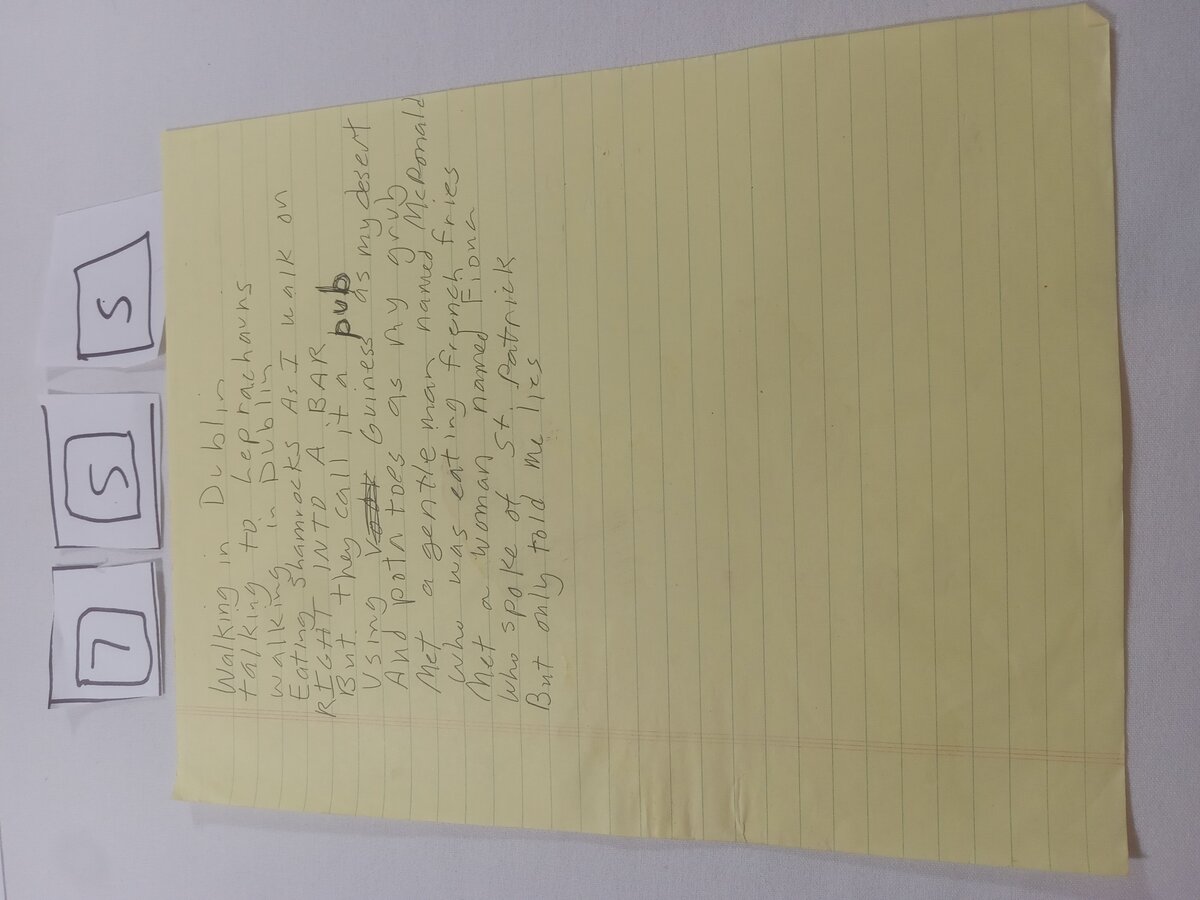 7 5 5
Walking in Dublin
talking to Leprachauns
walking in Dublin
Eating shamrocks As I walk on
RIGHT INTO A BAR
But they call it a pub
Using Guiness as my desert
And potatoes as my grub
Met a gentleman named McDonald
who was eating french fries
Met a woman named Fiona
who spoke of St. Patrick
But only told me lies